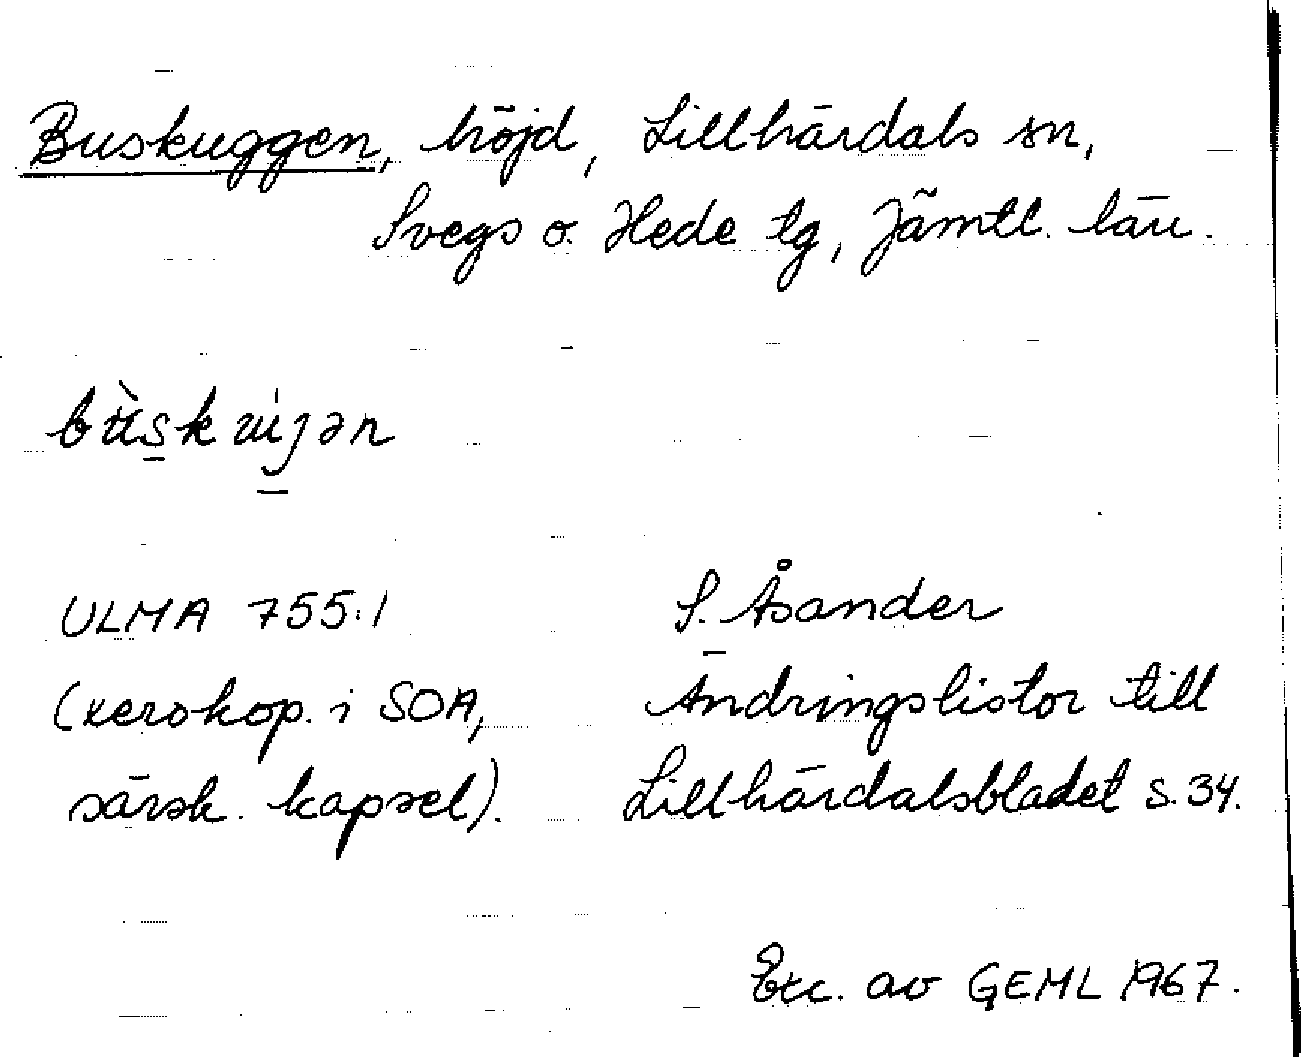 Buskuggen, höjd, Lillhärdals sn,
Svegs o. Hede tg, Jämtl. län.
ULMA 755:1
(xerokop. i SOA,
särsk. kapsel).
S. Åsander
Ändringslistor till
Lillhärdalsbladet s. 34.
Exc. av GEML 1967.